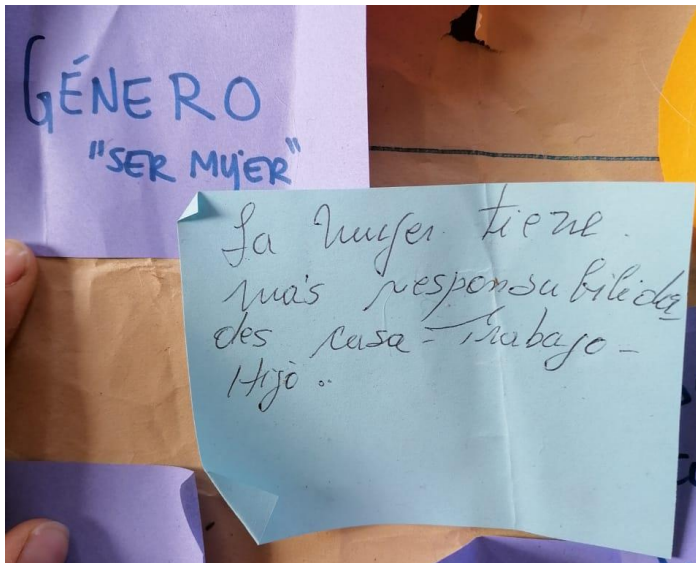 GÉNERO
"SER MUJER"
La mujer tiene
más responsabilida
des casa - Trabajo -
Hijo..